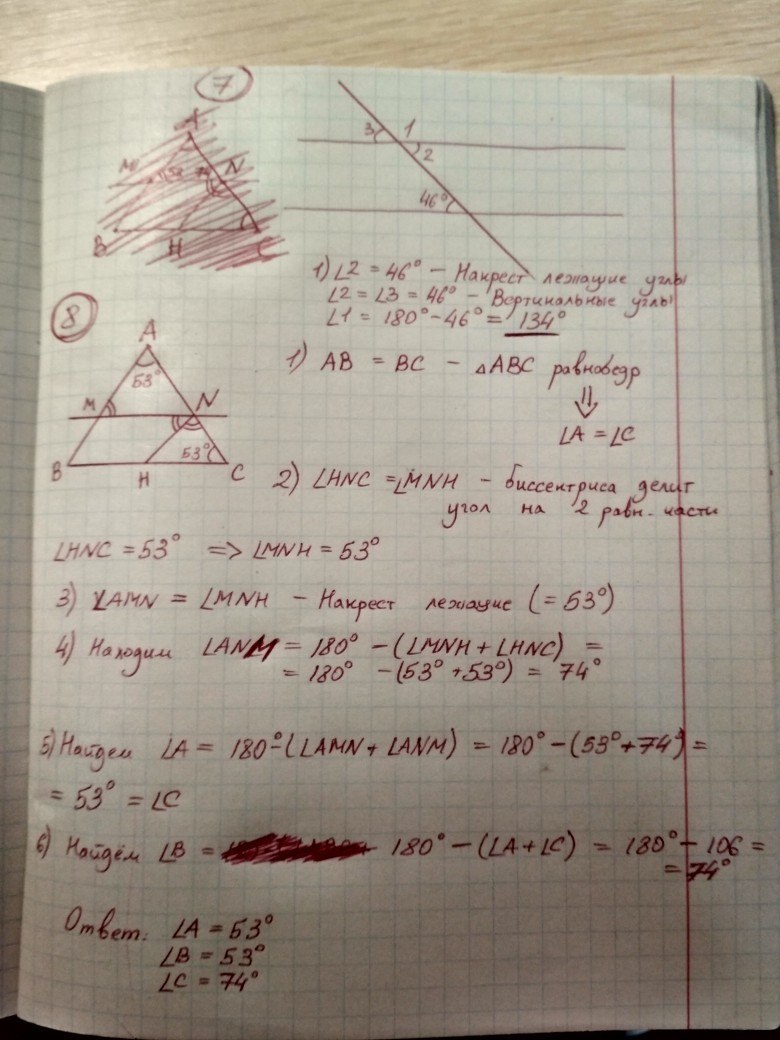 7
A
M
N
B
H
C
3 1
2
46°
1) ∠2 = 46° – Накрест лежащие углы
∠2 = ∠3 = 46° – Вертикальные углы
∠1 = 180° – 46° = 134°
8
A
53°
M
N
53°
B
H
C
1) AB = BC – △ABC равнобедр
⇓
∠A = ∠C
2) ∠HNC = ∠MNH – биссектриса делит
угол на 2 равн. части
∠HNC = 53° => ∠MNH = 53°
3) ∠AMN = ∠MNH – Накрест лежащие (= 53°)
4) Находим ∠ANM = 180° – (∠MNH + ∠HNC) =
= 180° – (53° + 53°) = 74°
5) Найдем ∠A = 180° – (∠AMN + ∠ANM) = 180° – (53° + 74°) =
= 53° = ∠C
6) Найдём ∠B = 180° – (∠A + ∠C) = 180° – 106 =
= 74°
Ответ: ∠A = 53°
∠B = 53°
∠C = 74°